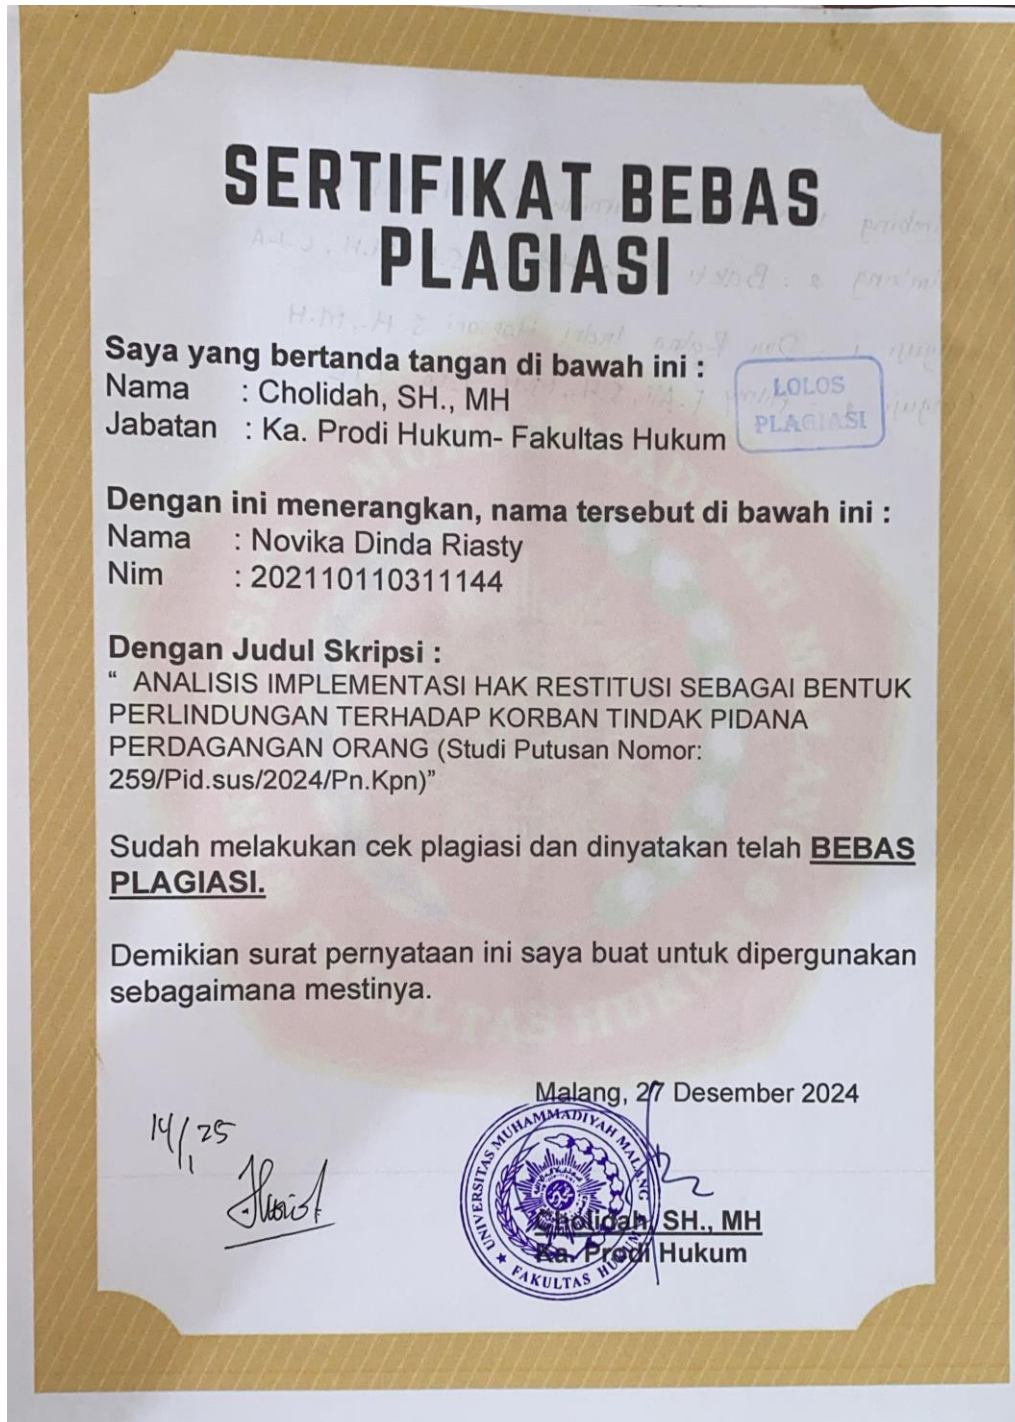 SERTIFIKAT BEBAS
PLAGIASI
Saya yang bertanda tangan di bawah ini :
Nama : Cholidah, SH., MH
Jabatan : Ka. Prodi Hukum- Fakultas Hukum
LOLOS
PLAGIASI
Dengan ini menerangkan, nama tersebut di bawah ini :
Nama : Novika Dinda Riasty
Nim : 202110110311144
Dengan Judul Skripsi :
“ ANALISIS IMPLEMENTASI HAK RESTITUSI SEBAGAI BENTUK
PERLINDUNGAN TERHADAP KORBAN TINDAK PIDANA
PERDAGANGAN ORANG (Studi Putusan Nomor:
259/Pid.sus/2024/Pn.Kpn)”
Sudah melakukan cek plagiasi dan dinyatakan telah BEBAS
PLAGIASI.
Demikian surat pernyataan ini saya buat untuk dipergunakan
sebagaimana mestinya.
Malang, 27 Desember 2024
14/1 25
UNIVERSITAS MUHAMMADIYAH MALANG
FAKULTAS HUKUM
Cholidah, SH., MH
Ka. Prodi Hukum